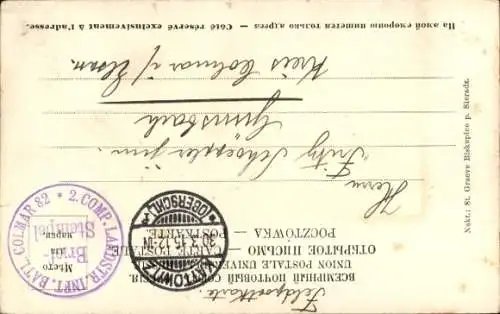 Feldpostkarte
ВСЕМІРНЫЙ ПОЧТОВЫЙ СОЮЗЪ.
UNION POSTALE UNIVERSELLE
ОТКРЫТОЕ ПИСЬМО — CARTE POSTALE
— POCZTÓWKA — POSTKARTE
Мѣсто
для
марки.
2. COMP. LANDSTR. INFT. BATL. COLMAR 82 *
Brief-
Stempel
KATTOWITZ
30.3.15.12-
* (OBERSCHL.)
Herrn
Fritz Schoeppler jun.
Gunsbach
Kreis Colmar i/ Elsass.
На этой сторонѣ пишется только адресъ — Côté réservé exclusivement à l'adresse.
Nakł.: St. Graeve Biskupice p. Sieradz.